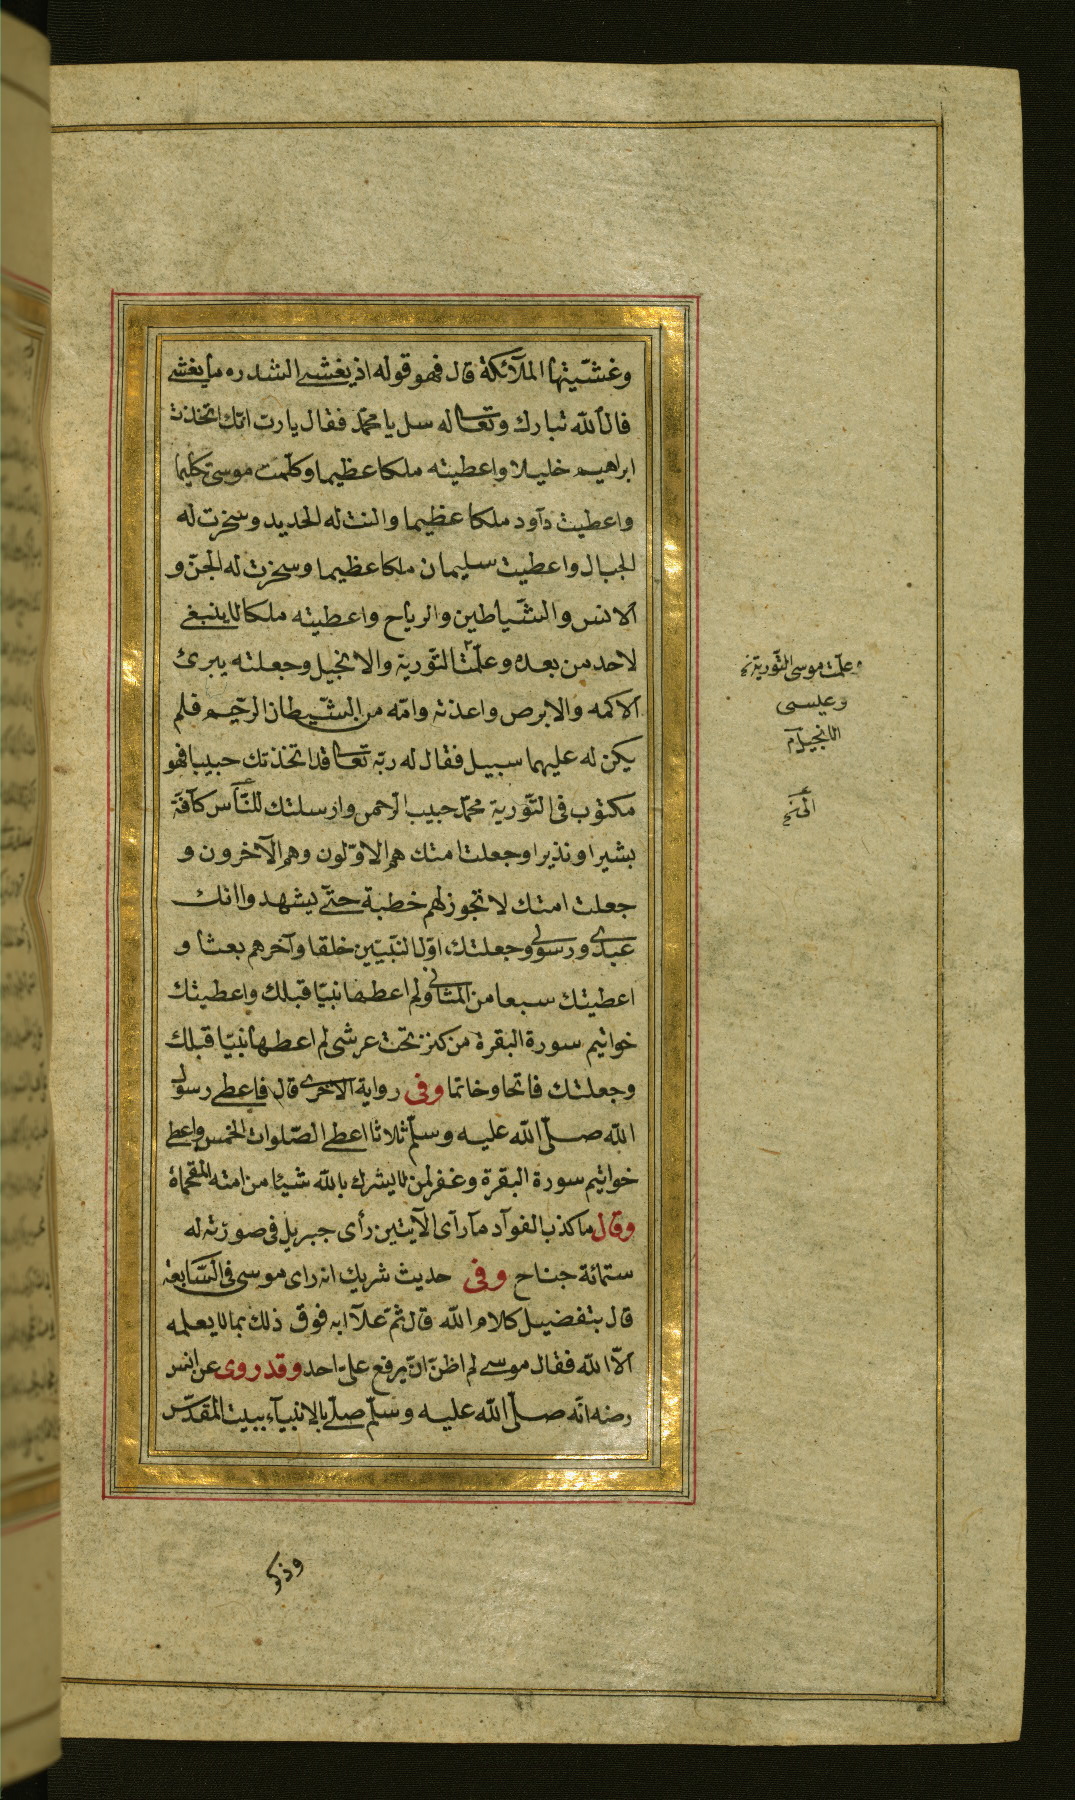 وغشّيتها الملآئكة قال فهو قوله اذ يغشى السّدره ما يغشى
قال اللّه تبارك وتعا له سل يا محمّد فقال يا ربّ انّك اتّخذت
ابراهيم خليلا واعطيته ملكا عظيما وكلّمت موسى تكليما
واعطيت دآود ملكا عظيما والنت له الحديد وسخّرت له
الجبال واعطيت سليمان ملكا عظيما وسخرت له الجنّ و
الانس والشّياطين والرياح واعطيته ملكا لاينبغي
لاحد من بعده وعلّمت التّورية والانجيل وجعلته يبرئ
الاكمه والابرص واعذته وامّه من الشّيطان الرّجيم فلم
يكن له عليهما سبيل فقال له ربّه تعا قد اتخذتك حبيبا فهو
مكتوب في التّورية محمّد حبيب الرحمن وارسلتك للنّآس كآفّة
بشيرا ونذيرا وجعلت امتك هم الاوّلون وهم الآخرون و
جعلت امتك لا تجوز لهم خطبة حتّى يشهدوا انك
عبدى ورسولى وجعلتك اوّل النّبيّين خلقا وآخرهم بعثا و
اعطيتك سبعا من المثانى ولم اعطها نبيّا قبلك واعطيتك
خواتيم سورة البقرة من كنز تحت عرشى لم اعطها نبيّا قبلك
وجعلتك فاتحا وخاتما وفى رواية الاخرى قال فاعطي رسول
اللّه صلّى اللّه عليه وسلّم ثلاثا اعطى الصّلوات الخمس واعطى
خواتيم سورة البقرة وغفر لمن لايشرك باللّه شيئا من امته المقحمات
وقال ما كذب الفوآد مآ رآى الآيتين رأى جبريل فى صورته له
ستمائة جناح وفى حديث شريك انه راى موسى فى السّابعة
قال بتفضيل كلام اللّه قال ثمّ علآ به فوق ذلك بما لايعلمه
الاّ اللّه فقال موسى لم اظنّ ان يرفع علىّ احد وقد روى عن انس
رضه انّه صلّى اللّه عليه وسلّم صلّى بالانبيآء ببيت المقدّس
وعلّمت موسى التّورية
وعيسى
الانجيل
وذكر